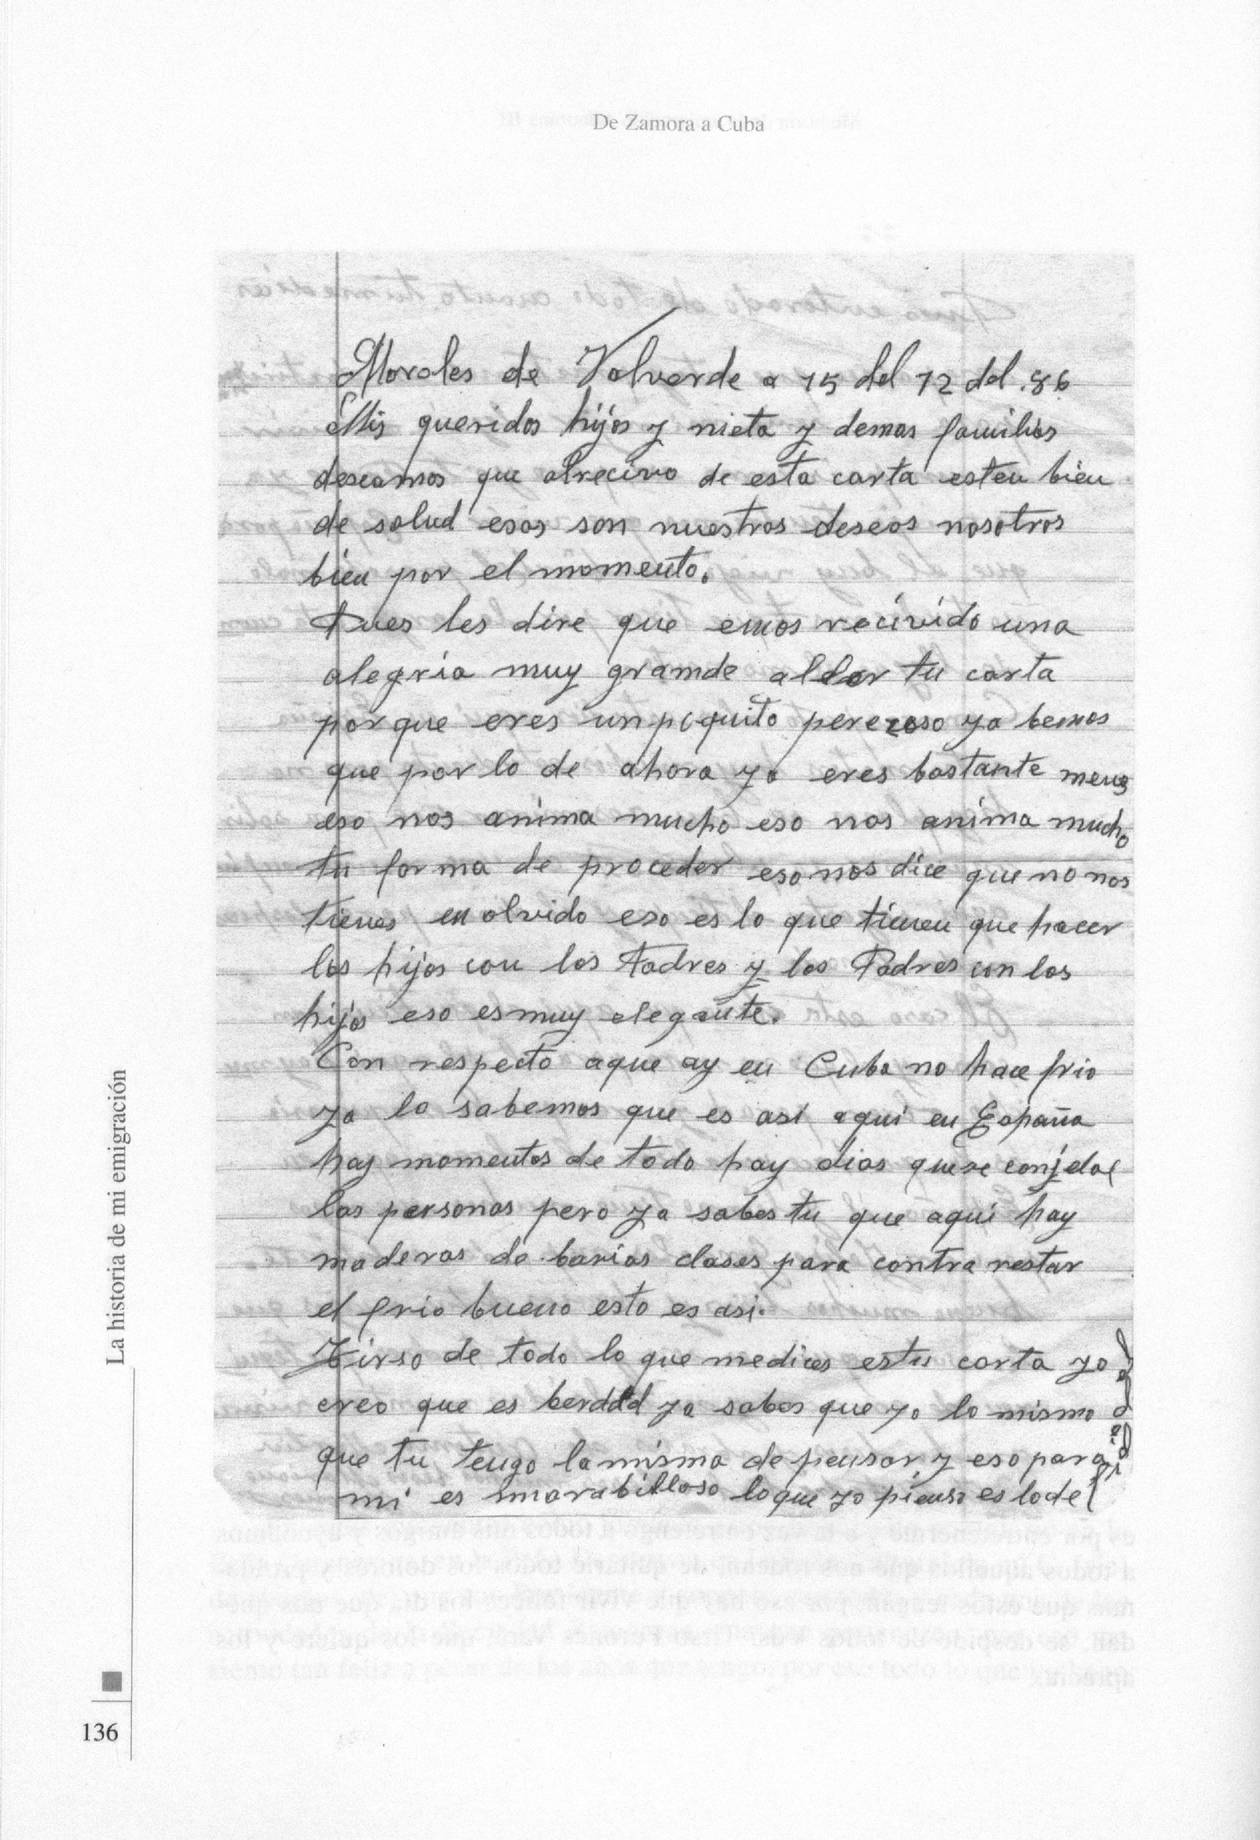 De Zamora a Cuba
Morales de Valverde a 15 del 12 del .86
Mis queridos hijos y nieta y demas familias
deseamos que alrecivo de esta carta esten bien
de salud esos son nuestros deseos nosotros
bien por el momento.
Pues les dire que emos recivido una
alegria muy grande al leer tu carta
porque eres un poquito perezoso ya bemos
que por lo de ahora ya eres bastante menos
eso nos anima mucho eso nos anima mucho
tu forma de proceder eso nos dice que no nos
tienes en olvido eso es lo que tienen que hacer
los hijos con los Padres y los Padres con los
hijos eso es muy elegante.
Con respecto aque ay en Cuba no hace frio
ya lo sabemos que es asi aqui en España
hay momentos de todo hay dias que se conjelan
las personas pero ya sabes tu que aqui hay
maderas de barias clases para contra restar
el frio bueno esto es asi.
Tirso de todo lo que medices estu carta yo
creo que es berdad ya sabes que yo lo mismo
que tu tengo la misma de pensar y eso para
mi es marabilloso loque yo pienso es lo de
La historia de mi emigración
136